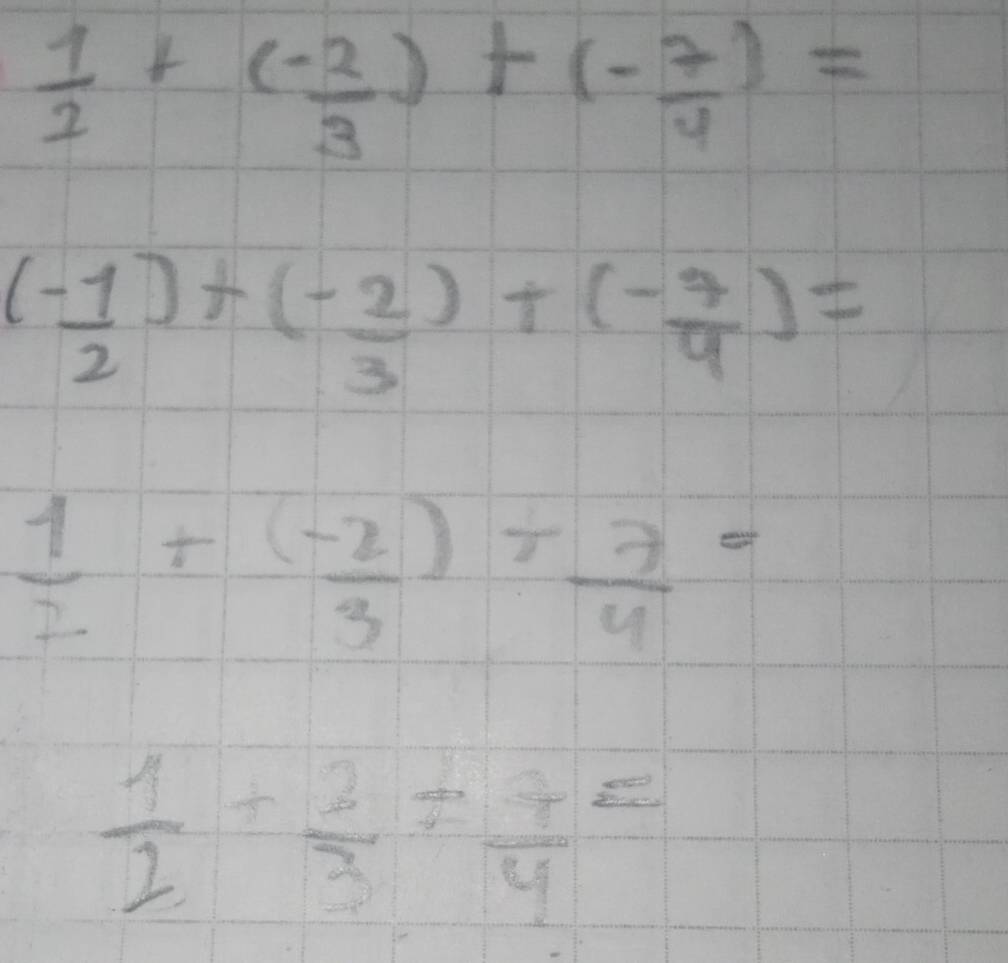 1/2 + (-2/3) + (-7/4) =
(-1/2) + (-2/3) + (-7/4) =
1/2 + (-2/3) + 7/4 =
1/2 + 2/3 + 7/4 =